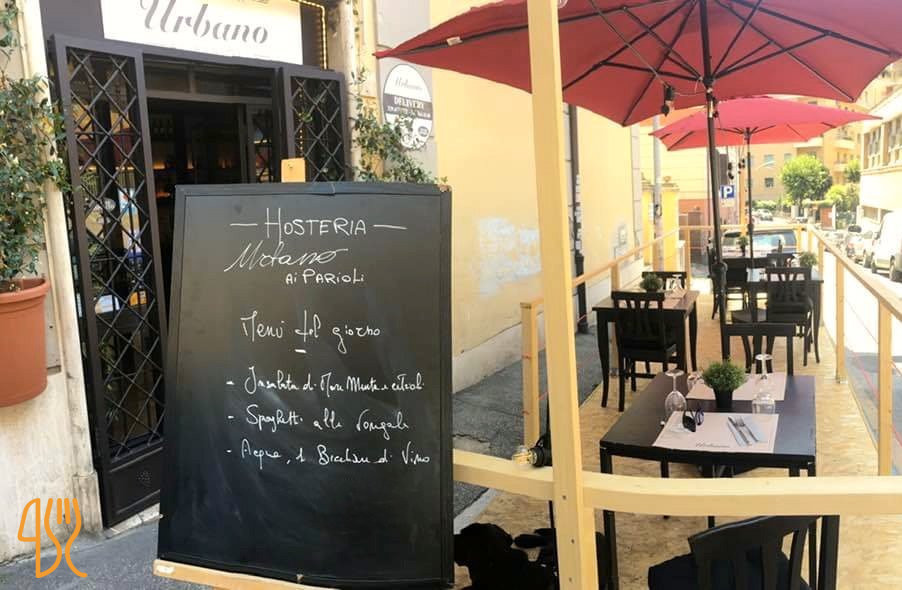 Urbano
Urbano
DELIVERY
— HOSTERIA —
Urbano
Ai PARIOLI
Menù del giorno
- Insalata di Mare Menta e cetrioli
- Spaghetti alle Vongole
- Acqua, 1 Bicchiere di Vino
P
Urbano